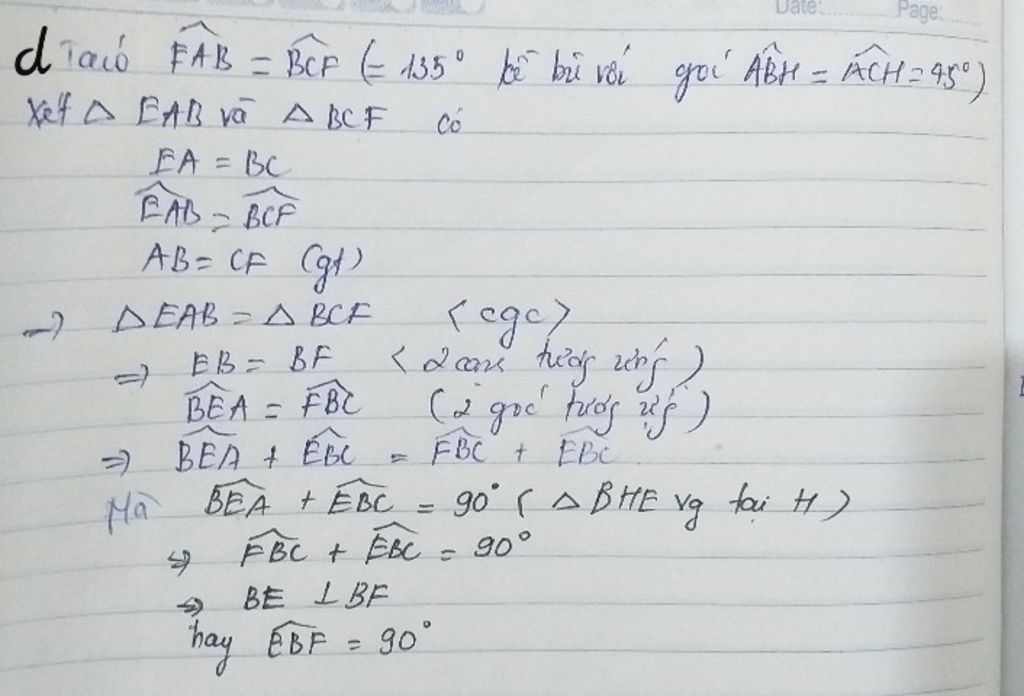 Date: Page:
d Ta có FAB = BCF (= 135° kề bù với góc ABH = ACH = 45°)
Xét △ EAB và △ BCF có
EA = BC
EAB = BCF
AB = CF (gt)
→ △EAB = △ BCF <cgc>
⇒ EB = BF < 2 cạnh tương ứng )
BEA = FBC (2 góc tương ứng)
⇒ BEA + EBC = FBC + EBC
Mà BEA + EBC = 90° ( △ BHE vg tại H )
⇒ FBC + EBC = 90°
⇒ BE ⊥ BF
hay EBF = 90°